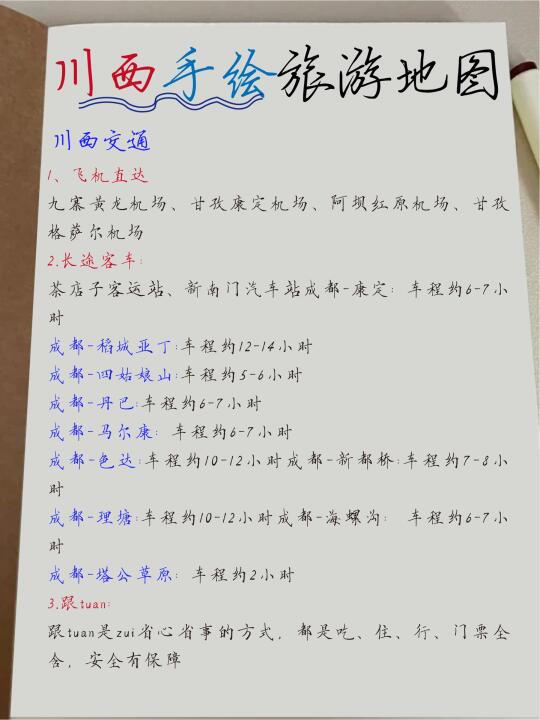 川西手绘旅游地图
川西交通
1、飞机直达
九寨黄龙机场、甘孜康定机场、阿坝红原机场、甘孜
格萨尔机场
2.长途客车:
茶店子客运站、新南门汽车站成都-康定：车程约6-7小
时
成都-稻城亚丁:车程约12-14小时
成都-四姑娘山:车程约5-6小时
成都-丹巴:车程约6-7小时
成都-马尔康：车程约6-7小时
成都-色达:车程约10-12小时成都-新都桥:车程约7-8小
时
成都-理塘:车程约10-12小时成都-海螺沟： 车程约6-7小
时
成都-塔公草原：车程约2小时
3.跟tuan:
跟tuan是zui省心省事的方式，都是吃、住、行、门票全
含，安全有保障